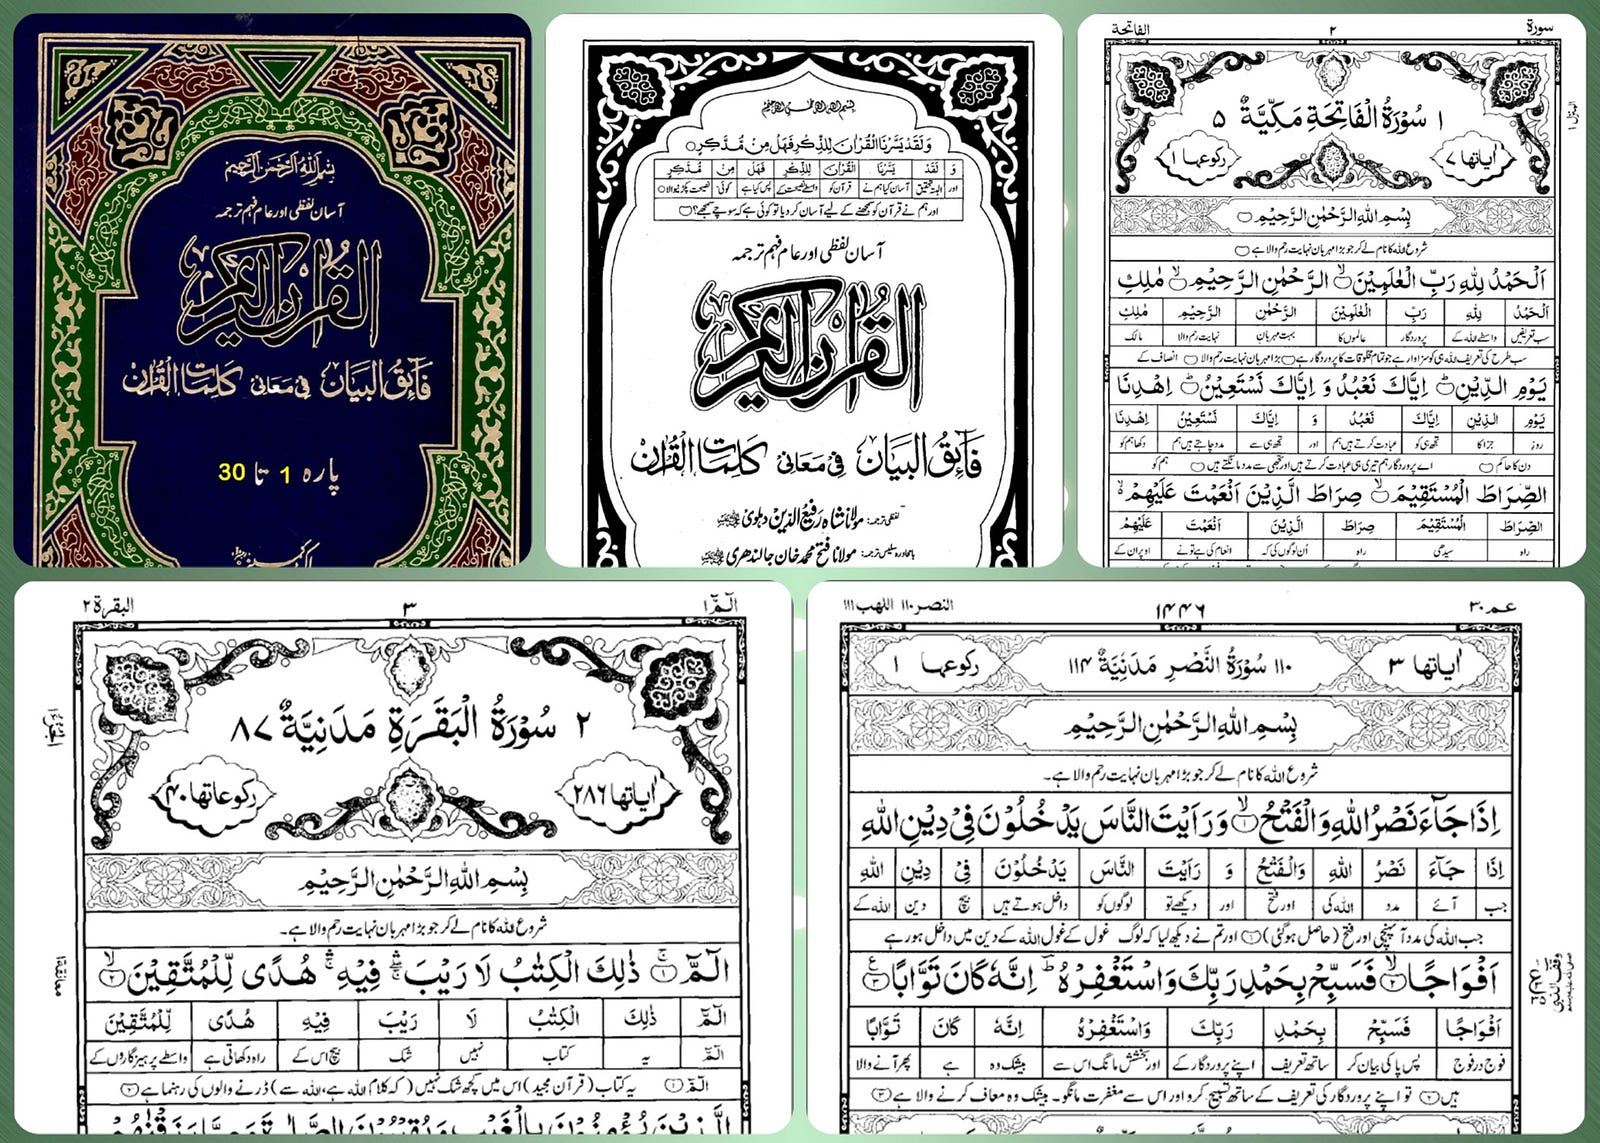 بسم الله الرحمن الرحيم
آسان لفظی اور عام فہم ترجمہ
القرآن الكريم
فَائِقُ البَيَان فِي مَعَانِي كَلِمَاتِ الْقُرْآن
پارہ 1 تا 30
بسم الله الرحمن الرحيم
وَلَقَدْ يَسَّرْنَا الْقُرْاٰنَ لِلذِّكْرِ فَهَلْ مِنْ مُّدَّكِرٍ
وَ لَقَدْ يَسَّرْنَا الْقُرْاٰنَ لِلذِّكْرِ فَهَلْ مِنْ مُّدَّكِرٍ
اور البتہ تحقیق آسان کیا ہم نے قرآن کو واسطے نصیحت کے پس کیا ہے کوئی نصیحت پکڑنے والا
اور ہم نے قرآن کو سمجھنے کے لیے آسان کر دیا تو کوئی ہے کہ سوچے سمجھے؟
آسان لفظی اور عام فہم ترجمہ
القرآن الكريم
فَائِقُ البَيَان فِي مَعَانِي كَلِمَاتِ الْقُرْآن
لفظی ترجمہ: مولانا شاہ رفیع الدین دہلوی
بامحاورہ سلیس ترجمہ: مولانا فتح محمد خان جالندھری
سورة ٢ الفاتحة
١ سُوْرَةُ الْفَاتِحَةِ مَكِّيَّةٌ ٥
اٰیاتها ٧ رکوعها ١
بِسْمِ اللهِ الرَّحْمٰنِ الرَّحِيْمِ
شروع اللہ کا نام لے کر جو بڑا مہربان نہایت رحم والا ہے
اَلْحَمْدُ لِلّٰهِ رَبِّ الْعٰلَمِيْنَ ۙ الرَّحْمٰنِ الرَّحِيْمِ ۙ مٰلِكِ
اَلْحَمْدُ لِلّٰهِ رَبِّ الْعٰلَمِيْنَ الرَّحْمٰنِ الرَّحِيْمِ مٰلِكِ
سب تعریفیں واسطے اللہ کے پروردگار عالموں کا بہت مہربان نہایت رحم والا مالک
سب طرح کی تعریف اللہ ہی کو سزاوار ہے جو تمام مخلوقات کا پروردگار ہے بڑا مہربان نہایت رحم والا انصاف کے
يَوْمِ الدِّيْنِ ؕ اِيَّاكَ نَعْبُدُ وَ اِيَّاكَ نَسْتَعِيْنُ ؕ اِهْدِنَا
يَوْمِ الدِّيْنِ اِيَّاكَ نَعْبُدُ وَ اِيَّاكَ نَسْتَعِيْنُ اِهْدِنَا
روز جزا کا تجھ ہی کو عبادت کرتے ہیں ہم اور تجھ ہی سے مدد چاہتے ہیں ہم دکھا ہم کو
دن کا حاکم اے پروردگار ہم تیری ہی عبادت کرتے ہیں اور تجھی سے مدد مانگتے ہیں ہم کو
الصِّرَاطَ الْمُسْتَقِيْمَ ۙ صِرَاطَ الَّذِيْنَ اَنْعَمْتَ عَلَيْهِمْ
الصِّرَاطَ الْمُسْتَقِيْمَ صِرَاطَ الَّذِيْنَ اَنْعَمْتَ عَلَيْهِمْ
راہ سیدھی راہ اُن لوگوں کی کہ انعام کی ہے تو نے اوپر ان کے
الٓمّٓ ١ ٣ البقرة ٢
٢ سُوْرَةُ الْبَقَرَةِ مَدَنِيَّةٌ ٨٧
اٰیاتها ٢٨٦ رکوعاتها ٤٠
بِسْمِ اللهِ الرَّحْمٰنِ الرَّحِيْمِ
شروع اللہ کا نام لے کر جو بڑا مہربان نہایت رحم والا ہے۔
الٓمّٓ ۚ ذٰلِكَ الْكِتٰبُ لَا رَيْبَ ۛ فِيْهِ ۛ هُدًى لِّلْمُتَّقِيْنَ ۙ
الٓمّٓ ذٰلِكَ الْكِتٰبُ لَا رَيْبَ فِيْهِ هُدًى لِّلْمُتَّقِيْنَ
الٓمّٓ یہ کتاب نہیں شک بیچ اس کے راہ دکھاتی ہے واسطے پرہیزگاروں کے
الٓمّٓ ١ یہ کتاب (قرآن مجید) اس میں کچھ شک نہیں (کہ کلام اللہ ہے، اللہ سے) ڈرنے والوں کی رہنما ہے ٢
الَّذِيْنَ يُؤْمِنُوْنَ بِالْغَيْبِ وَيُقِيْمُوْنَ الصَّلٰوةَ وَمِمَّا رَزَقْنٰهُمْ
عم ٣٠ ١٤٤٦ النصر ١١٠ اللهب ١١١
١١٠ سُوْرَةُ النَّصْرِ مَدَنِيَّةٌ ١١٤
اٰیاتها ٣ رکوعها ١
بِسْمِ اللهِ الرَّحْمٰنِ الرَّحِيْمِ
شروع اللہ کا نام لے کر جو بڑا مہربان نہایت رحم والا ہے۔
اِذَا جَآءَ نَصْرُ اللهِ وَالْفَتْحُ ۙ ١ وَرَاَيْتَ النَّاسَ يَدْخُلُوْنَ فِيْ دِيْنِ اللهِ
اِذَا جَآءَ نَصْرُ اللهِ وَالْفَتْحُ وَ رَاَيْتَ النَّاسَ يَدْخُلُوْنَ فِيْ دِيْنِ اللهِ
جب آئے مدد اللہ کی اور فتح اور دیکھے تو لوگوں کو داخل ہوتے ہیں بیچ دین اللہ کے
جب اللہ کی مدد آ پہنچی اور فتح (حاصل ہو گئی) ١ اور تم نے دیکھ لیا کہ لوگ غول کے غول اللہ کے دین میں داخل ہو رہے
اَفْوَاجًا ۙ ٢ فَسَبِّحْ بِحَمْدِ رَبِّكَ وَاسْتَغْفِرْهُ ؕ اِنَّهٗ كَانَ تَوَّابًا ٣
اَفْوَاجًا فَسَبِّحْ بِحَمْدِ رَبِّكَ وَاسْتَغْفِرْهُ اِنَّهٗ كَانَ تَوَّابًا
فوج در فوج پس پاکی بیان کر ساتھ تعریف اپنے پروردگار کے اور بخشش مانگ اس سے بیشک وہ ہے پھر آنے والا
ہیں ٢ تو اپنے پروردگار کی تعریف کے ساتھ تسبیح کرو اور اس سے مغفرت مانگو۔ بیشک وہ معاف کرنے والا ہے ٣